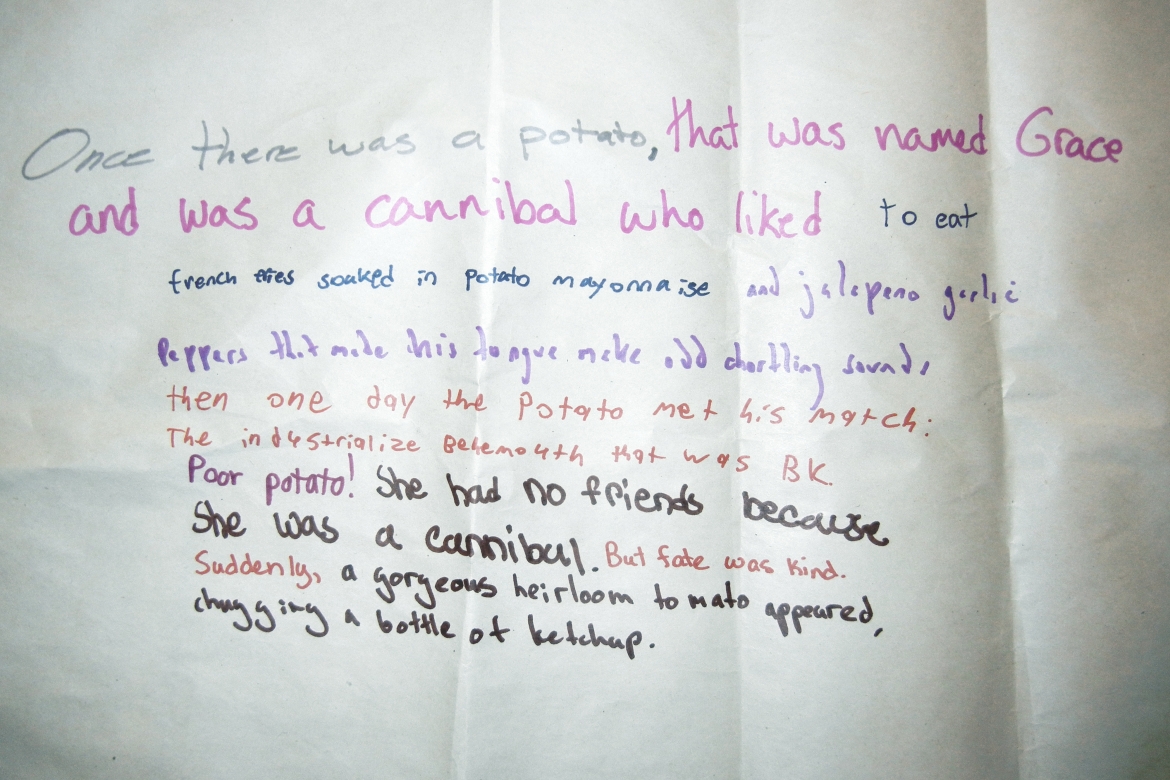 Once there was a potato, that was named Grace
and was a cannibal who liked to eat
french fries soaked in potato mayonnaise and jalepeno garlic
Peppers that made his tongue make odd chortling sounds
then one day the Potato met his match:
The industrialize Behemouth that was BK.
Poor potato! She had no friends because
She was a cannibal. But fate was kind.
Suddenly, a gorgeous heirloom tomato appeared,
chugging a bottle of ketchup.